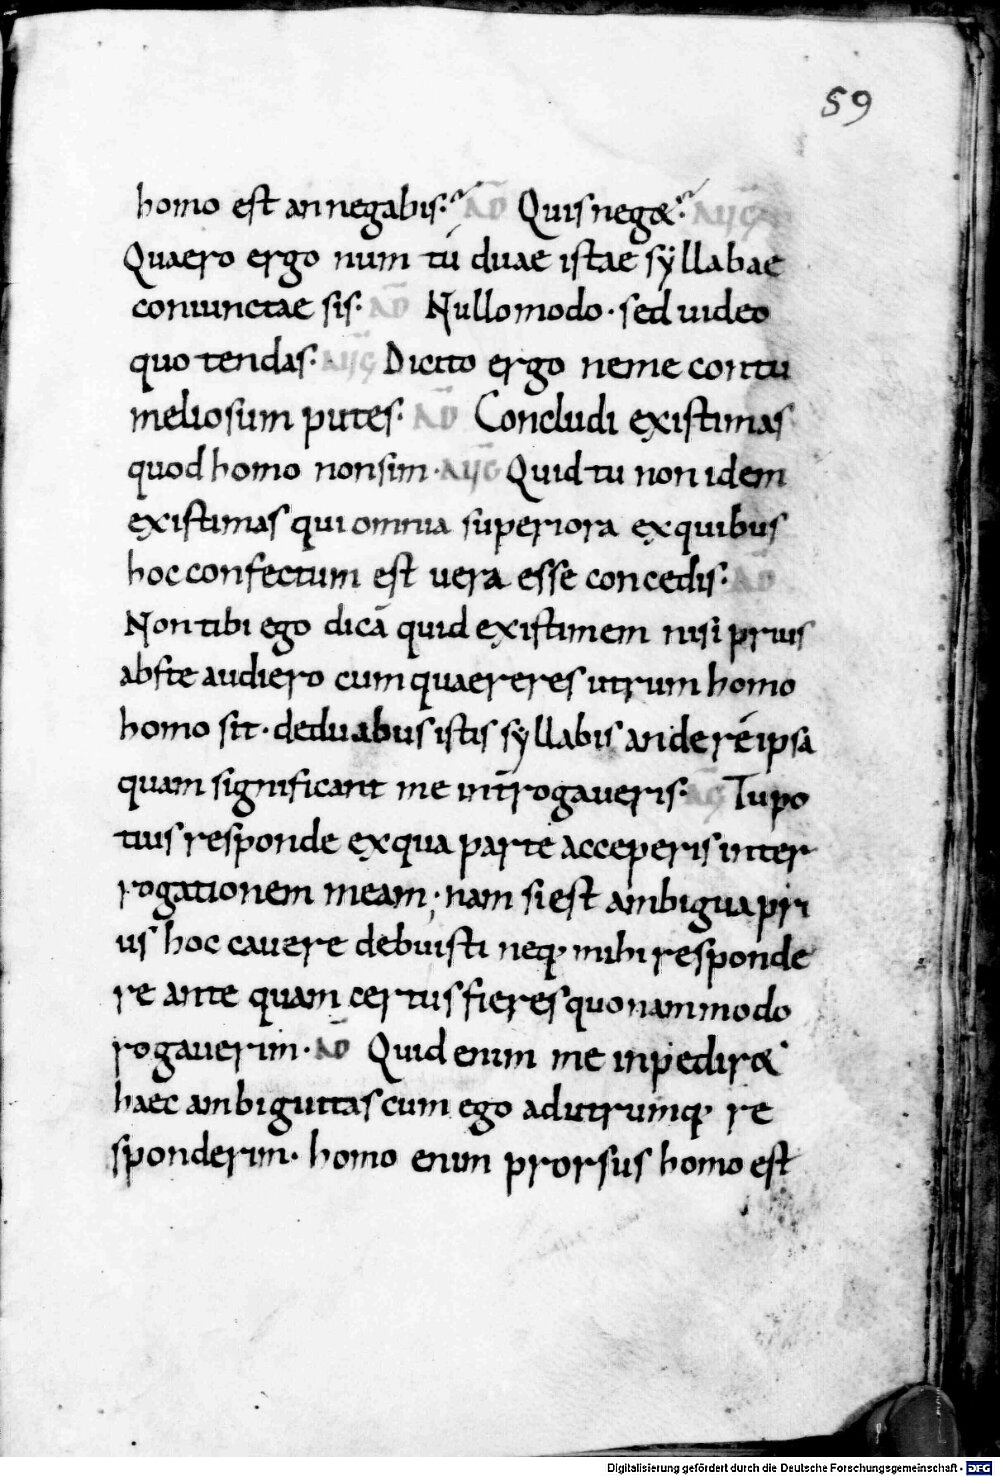 59
homo est an negabis? AD Quis neg&? AUG
Quaero ergo num tú duae istae syllabae
coniunctae sis. AD Nullo modo · sed uideo
quo tendas. AUG Dicito ergo ne me contu
meliosum putes. AD Concludi existimas
quod homo non sim · AUG Quid tu non idem
existimas qui omnia superiora ex quibus
hoc confectum est uera esse concedis. AD
Non tibi ego dicā quid existimem nisi prius
abs te audiero cum quaereres utrum homo
homo sit · de duabus istis syllabis an de rē ipsa
quam significant me int̄rogaueris. AG Tu po
tius responde ex qua parte acceperis inter
rogationem meam; nam si est ambigua pri
us hoc cauere debuisti neq; mihi responde
re ante quam certus fieres quonam modo
rogauerim · AD Quid enim me inpedir&
haec ambiguitas cum ego ad utrumq; re
sponderim · homo enim prorsus homo est
Digitalisierung gefördert durch die Deutsche Forschungsgemeinschaft - DFG